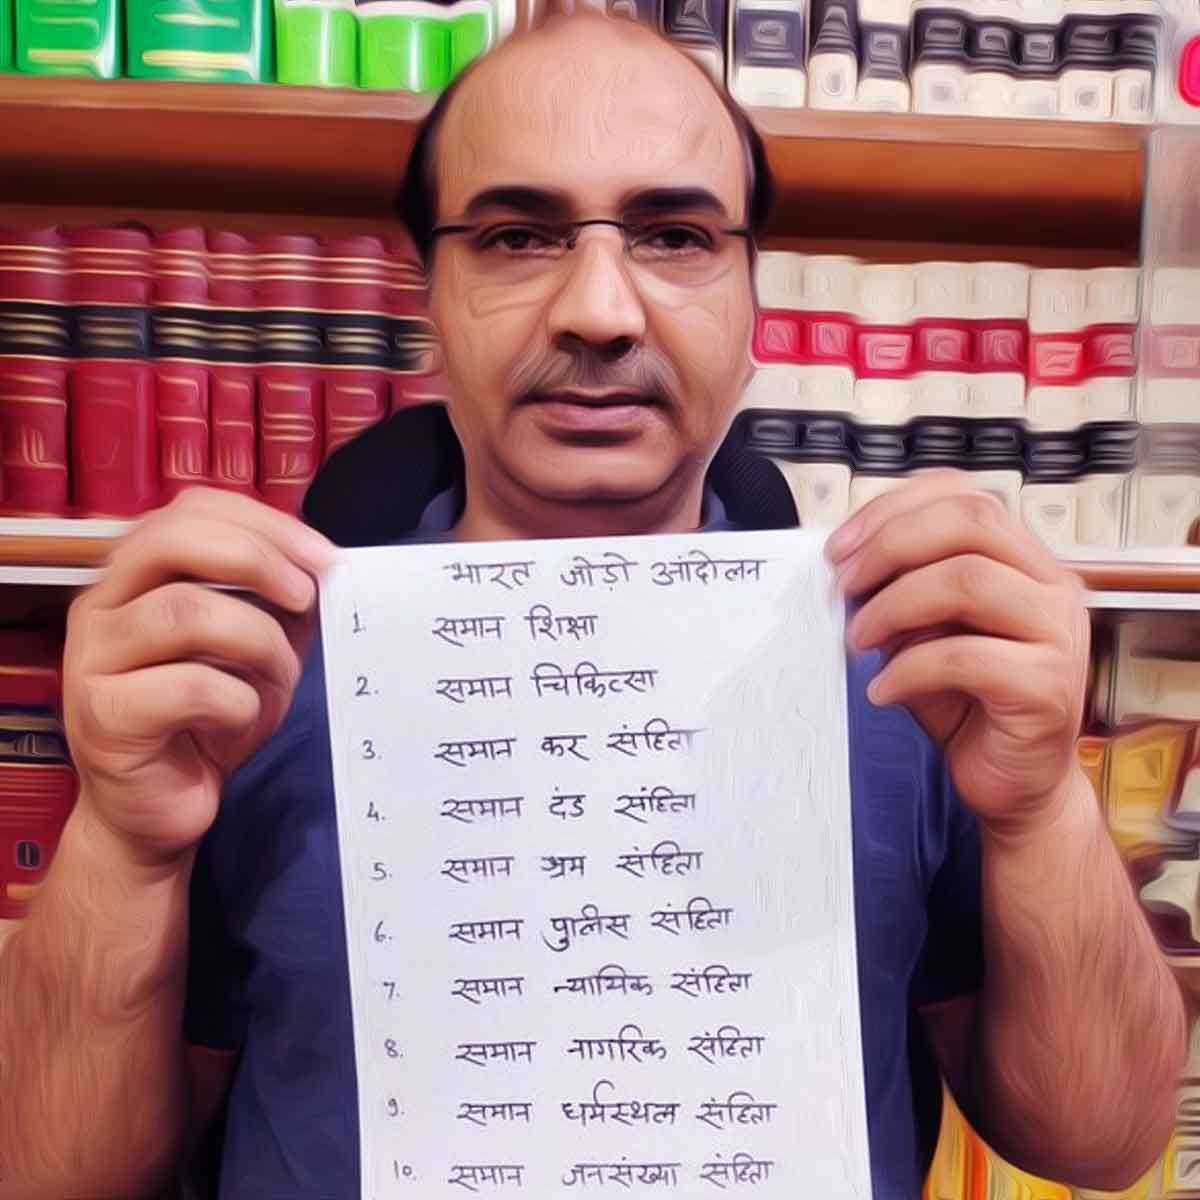 भारत जोड़ो आंदोलन
1. समान शिक्षा
2. समान चिकित्सा
3. समान कर संहिता
4. समान दंड संहिता
5. समान श्रम संहिता
6. समान पुलिस संहिता
7. समान न्यायिक संहिता
8. समान नागरिक संहिता
9. समान धर्मस्थल संहिता
10. समान जनसंख्या संहिता